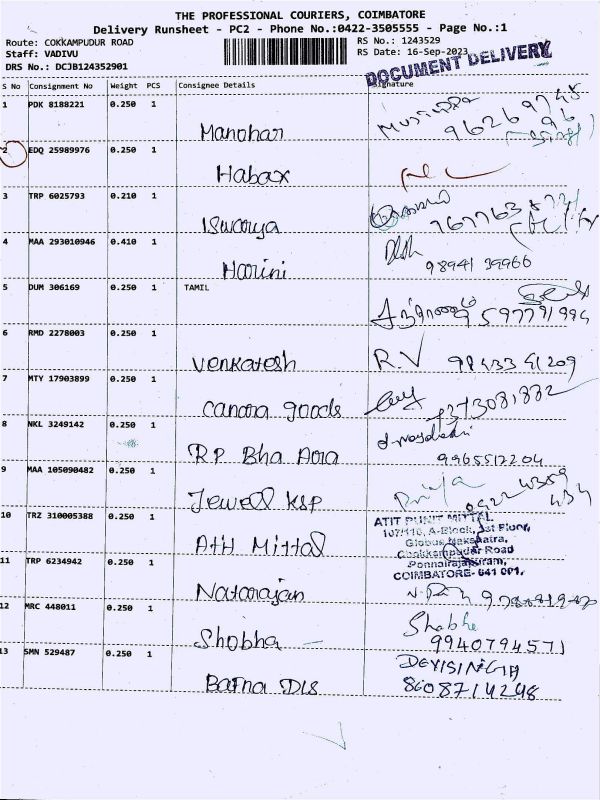 THE PROFESSIONAL COURIERS, COIMBATORE
Delivery Runsheet - PC2 - Phone No.:0422-3505555 - Page No.:1
Route: COKKAMPUDUR ROAD
RS No.: 1243529
Staff: VADIVU
RS Date: 16-Sep-2023
DRS No.: DCJB124352901
DOCUMENT DELIVERY
S No Consignment No Weight PCS Consignee Details Signature
1 PDK 8188221 0.250 1
Manohar
2 EDQ 25989976 0.250 1
Habax
3 TRP 6025793 0.210 1
Iswarya
4 MAA 293010946 0.410 1
Harini 98941 39966
5 DUM 306169 0.250 1 TAMIL
9597791994
6 RMD 2278003 0.250 1
Venkatesh R.V 98433 41209
7 MTY 17903899 0.250 1
Canara goods
8 NKL 3249142 0.250 1
RP Bha Ara 9965517204
9 MAA 105090482 0.250 1
Jewell KSP Priya 0422 4359
434
10 TRZ 310005388 0.250 1
Atit Mittal
ATIT PUNIT MITTAL
107/116, A-Block, 1st Floor,
Globus Nakshatra,
Chokkampudur Road
Ponnairajapuram,
COIMBATORE- 641 001.
11 TRP 6234942 0.250 1
Natarajan
12 MRC 448011 0.250 1
Shobha Shobha
9940794571
13 SMN 529487 0.250 1
Bafna Dls DEVISINGH
8608714248